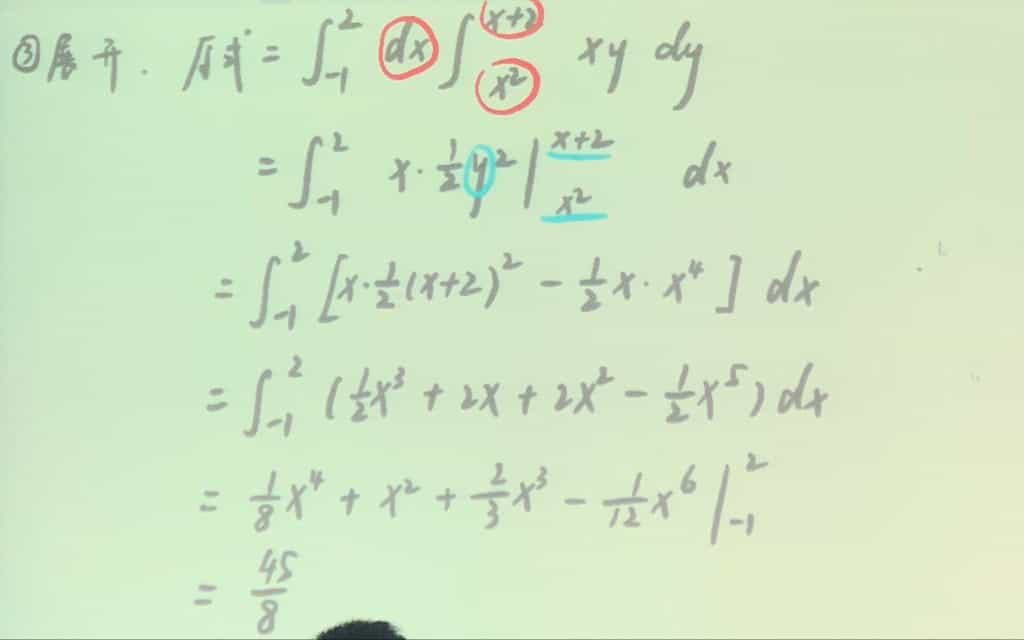 ③展开. 原式 = ∫_{-1}^{2} dx ∫_{x²}^{x+2} xy dy
= ∫_{-1}^{2} x·½y² |_{x²}^{x+2} dx
= ∫_{-1}^{2} [x·½(x+2)² - ½x·x⁴] dx
= ∫_{-1}^{2} (½x³ + 2x + 2x² - ½x⁵) dx
= 1/8 x⁴ + x² + 2/3 x³ - 1/12 x⁶ |_{-1}^{2}
= 45/8